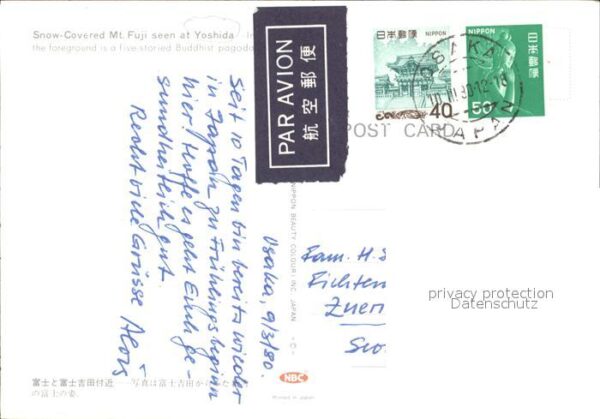 Snow-Covered Mt. Fuji seen at Yoshida
the foreground is a five-storied Buddhist pagoda
PAR AVION
航空郵便
日本郵便 NIPPON
40
NIPPON
日本郵便
50
OSAKA
10.III.80.12-18
JAPAN
POST CARD
Osaka, 9/3/80.
Seit 10 Tagen bin bereits wieder
in Japan zu Frühlingsbeginn
hier. Hoffe es geht Euch ge-
sundheitlich gut.
Recht viele Grüsse Alois
Fam. H. S
Fichten
privacy protection
Datenschutz
NIPPON BEAUTY COLOUR INC. JAPAN
NBC
Printed in Japan
富士と富士吉田付近
写真は富士吉田か
の富士の姿